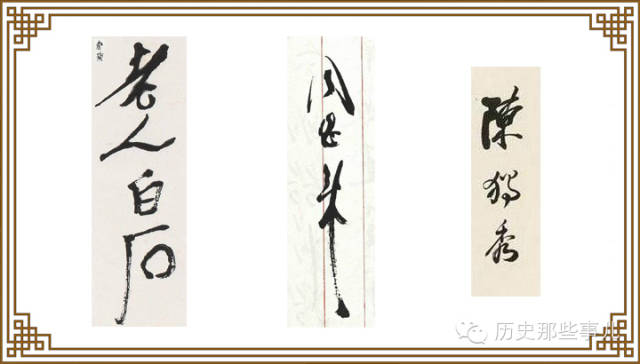 老人白石
周恩来
陳獨秀
历史那些事儿